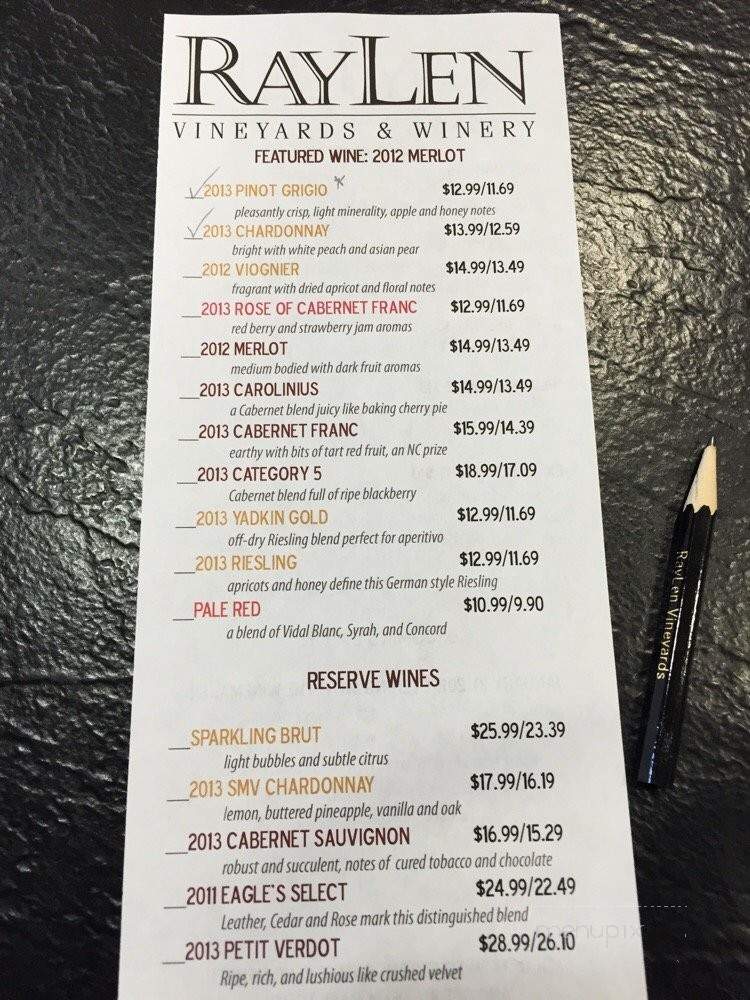 RAYLEN
VINEYARDS & WINERY
FEATURED WINE: 2012 MERLOT
2013 PINOT GRIGIO $12.99/11.69
pleasantly crisp, light minerality, apple and honey notes
2013 CHARDONNAY $13.99/12.59
bright with white peach and asian pear
2012 VIOGNIER $14.99/13.49
fragrant with dried apricot and floral notes
2013 ROSE OF CABERNET FRANC $12.99/11.69
red berry and strawberry jam aromas
2012 MERLOT $14.99/13.49
medium bodied with dark fruit aromas
2013 CAROLINIUS $14.99/13.49
a Cabernet blend juicy like baking cherry pie
2013 CABERNET FRANC $15.99/14.39
earthy with bits of tart red fruit, an NC prize
2013 CATEGORY 5 $18.99/17.09
Cabernet blend full of ripe blackberry
2013 YADKIN GOLD $12.99/11.69
off-dry Riesling blend perfect for aperitivo
2013 RIESLING $12.99/11.69
apricots and honey define this German style Riesling
PALE RED $10.99/9.90
a blend of Vidal Blanc, Syrah, and Concord
RESERVE WINES
SPARKLING BRUT $25.99/23.39
light bubbles and subtle citrus
2013 SMV CHARDONNAY $17.99/16.19
lemon, buttered pineapple, vanilla and oak
2013 CABERNET SAUVIGNON $16.99/15.29
robust and succulent, notes of cured tobacco and chocolate
2011 EAGLE'S SELECT $24.99/22.49
Leather, Cedar and Rose mark this distinguished blend
2013 PETIT VERDOT $28.99/26.10
Ripe, rich, and lushious like crushed velvet
RayLen Vineyards
menupix